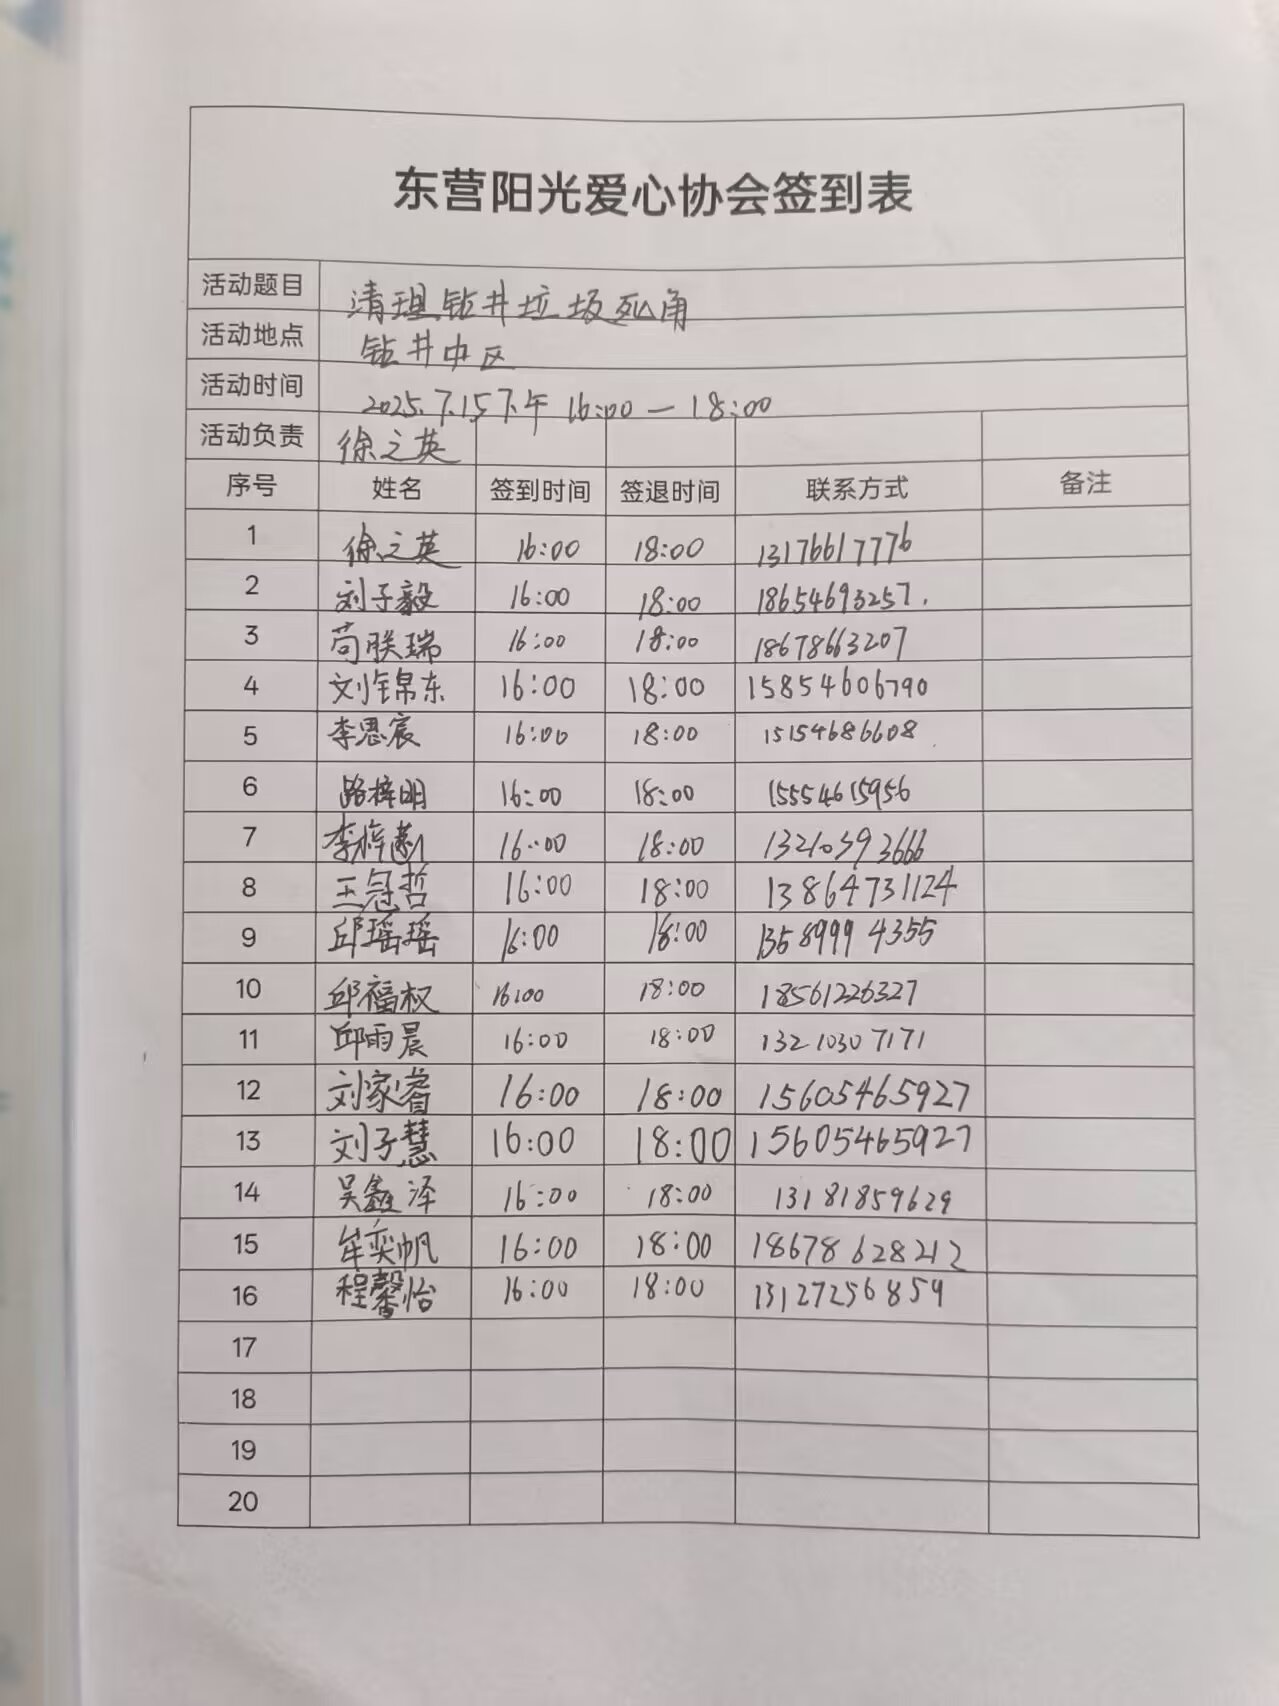 东营阳光爱心协会签到表
活动题目 清理钻井垃圾死角
活动地点 钻井中区
活动时间 2025.7.15下午 16:00—18:00
活动负责 徐之英
序号 姓名 签到时间 签退时间 联系方式 备注
1 徐之英 16:00 18:00 13176617776
2 刘子毅 16:00 18:00 18654693257.
3 苟朕瑞 16:00 18:00 18678663207
4 刘锦东 16:00 18:00 15854606790
5 李思宸 16:00 18:00 15154686608
6 路梓明 16:00 18:00 15554615956
7 李梓 16:00 18:00 13210393666
8 王冠哲 16:00 18:00 13864731124
9 邱瑶瑶 16:00 18:00 13589994355
10 邱福权 16:00 18:00 18561226327
11 邱雨晨 16:00 18:00 13210307171
12 刘家睿 16:00 18:00 15605465927
13 刘子慧 16:00 18:00 15605465927
14 吴鑫泽 16:00 18:00 13181859629
15 牟奕帆 16:00 18:00 18678628212
16 程馨怡 16:00 18:00 13127256859
17
18
19
20